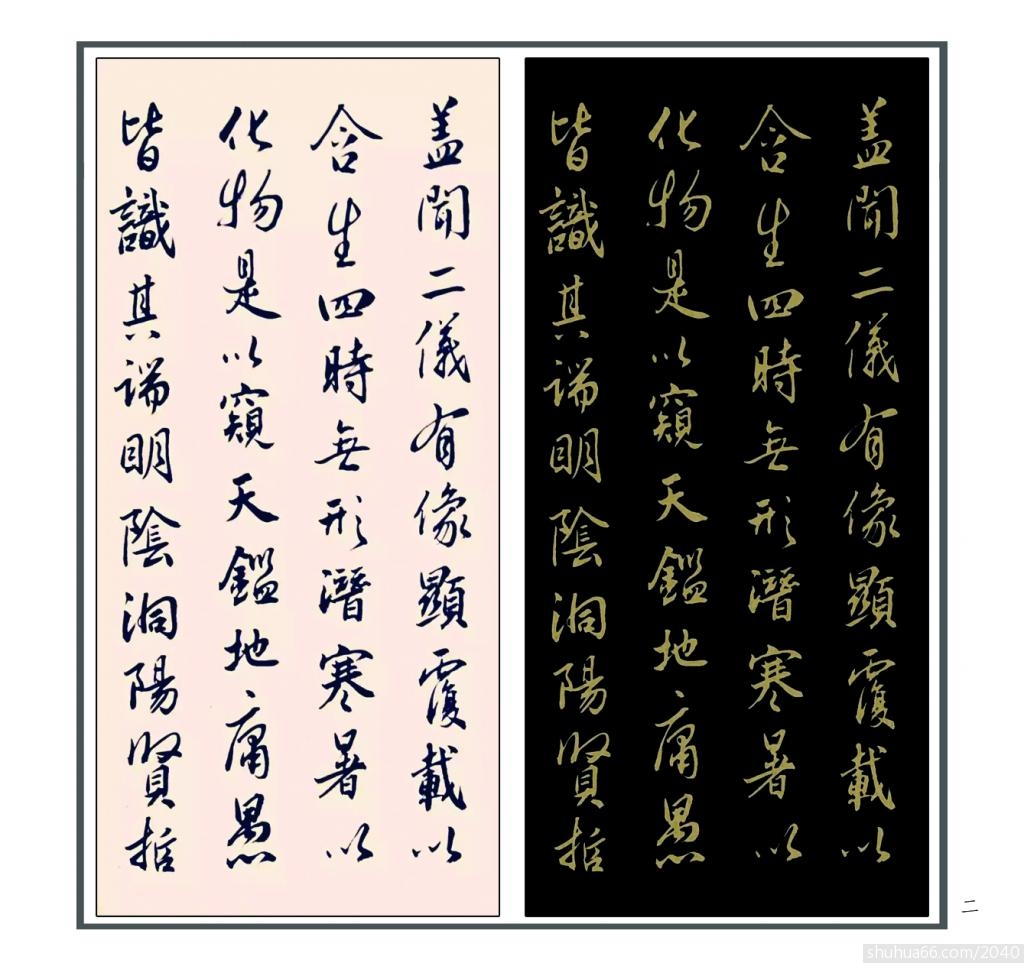 盖聞二儀有像顯覆載以
含生四時無形潛寒暑以
化物是以窺天鑑地庸愚
皆識其端明陰洞陽賢哲
盖聞二儀有像顯覆載以
含生四時無形潛寒暑以
化物是以窺天鑑地庸愚
皆識其端明陰洞陽賢哲
二
shuhua66.com/2040